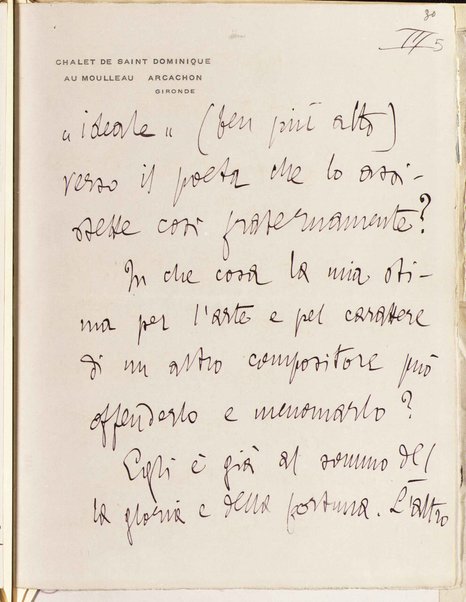 30
III 5
CHALET DE SAINT DOMINIQUE
AU MOULLEAU ARCACHON
GIRONDE
"ideale" (ben più alto)
verso il poeta che lo assi-
stette così fraternamente?
In che cosa la mia sti-
ma per l'arte e pel carattere
di un altro compositore può
offenderlo e menomarlo?
Egli è già al sommo del
la gloria e della fortuna. L'altro